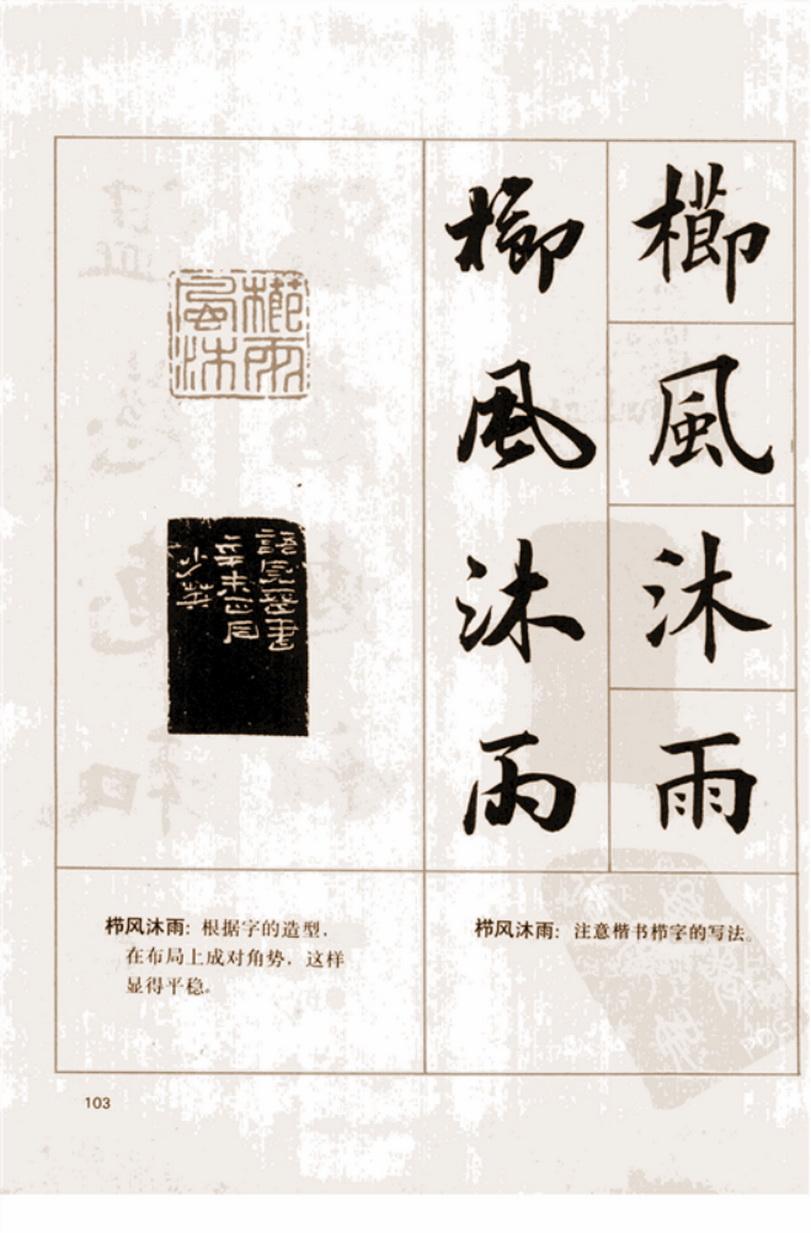 櫛風沐雨
櫛風沐雨
櫛雨
風沐
辛未正月
栉风沐雨：注意楷书栉字的写法。
栉风沐雨：根据字的造型，
在布局上成对角势，这样
显得平稳。
103
PDG